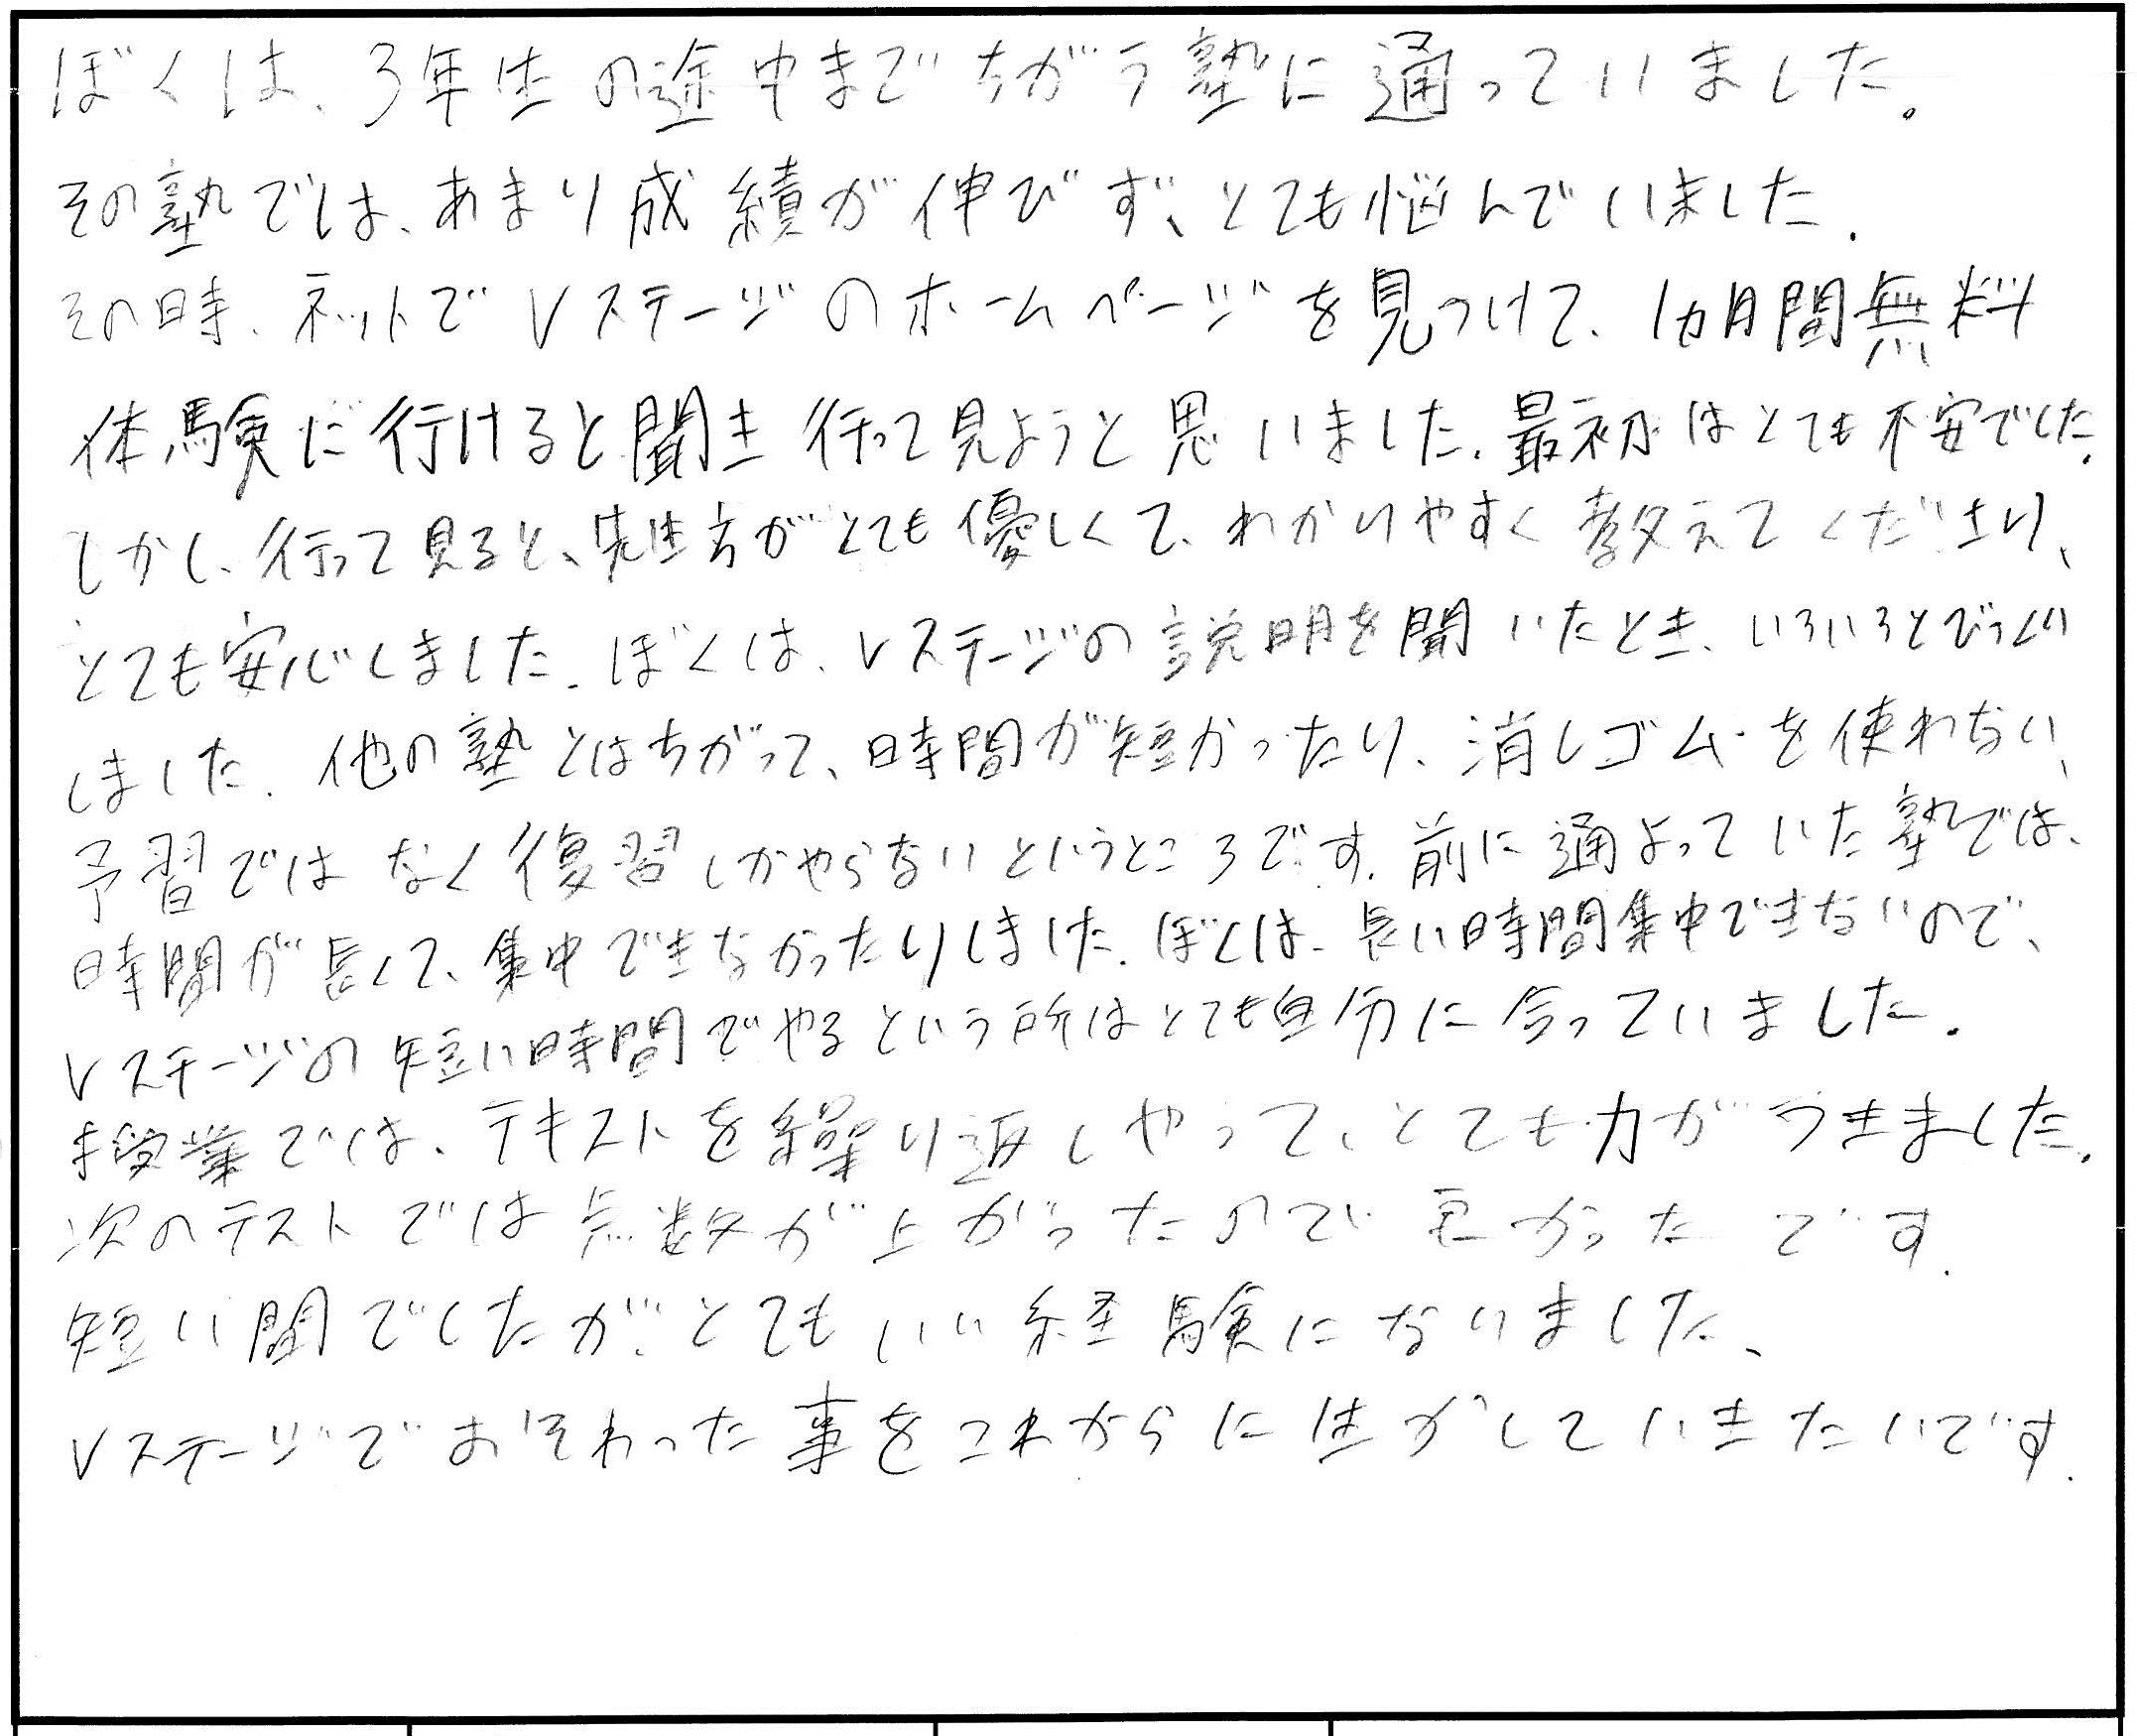 ぼくは、3年生の途中までちがう塾に通っていました。
その塾では、あまり成績が伸びず、とても悩んでいました。
その時、ネットでVステージのホームページを見つけて、1ヵ月間無料
体験に行けると聞き行って見ようと思いました。最初はとても不安でした。
しかし、行って見ると、先生方がとても優しくて、わかりやすく教えてくださり、
とても安心しました。ぼくは、Vステージの説明を聞いたとき、いろいろとびっくり
しました。他の塾とはちがって、時間が短かったり、消しゴムを使わない、
予習ではなく復習しかやらないというところです。前に通よっていた塾では、
時間が長くて、集中できなかったりしました。ぼくは、長い時間集中できないので、
Vステージの短い時間でやるという所はとても自分に合っていました。
授業では、テキストを繰り返しやって、とても力がつきました。
次のテストでは点数が上がったので良かったです。
短い間でしたが、とてもいい経験になりました、
Vステージでおそわった事をこれからに生かしていきたいです。